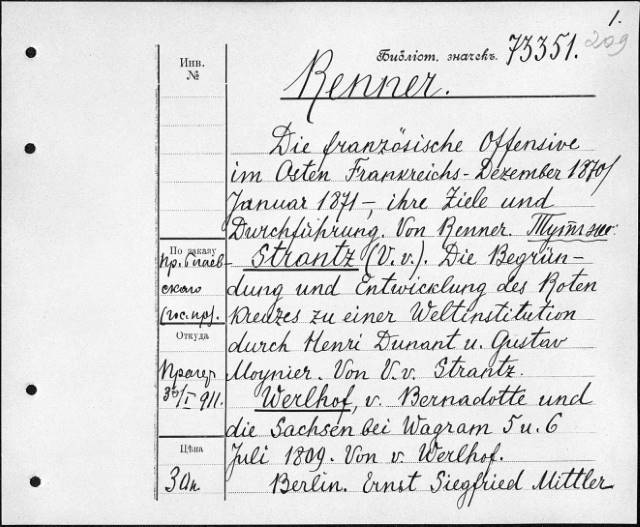 1.
Библіот. значекъ. 73351. 209
Инв.
№
Renner.
Die französische Offensive
im Osten Frankreichs - Dezember 1870/
Januar 1871 -, ihre Ziele und
Durchführung. Von Renner. Тутъ же:
По заказу
Strantz (V. v.). Die Begrün-
dung und Entwicklung des Roten
скаго
(гос. пр).
Kreuzes zu einer Weltinstitution
Откуда
durch Henri Dunant u. Gustav
Moynier. Von V. v. Strantz.
911.
Werlhof, v. Bernadotte und
die Sachsen bei Wagram 5 u. 6
Цѣна
Juli 1809. Von v. Werlhof.
Berlin. Ernst Siegfried Mittler